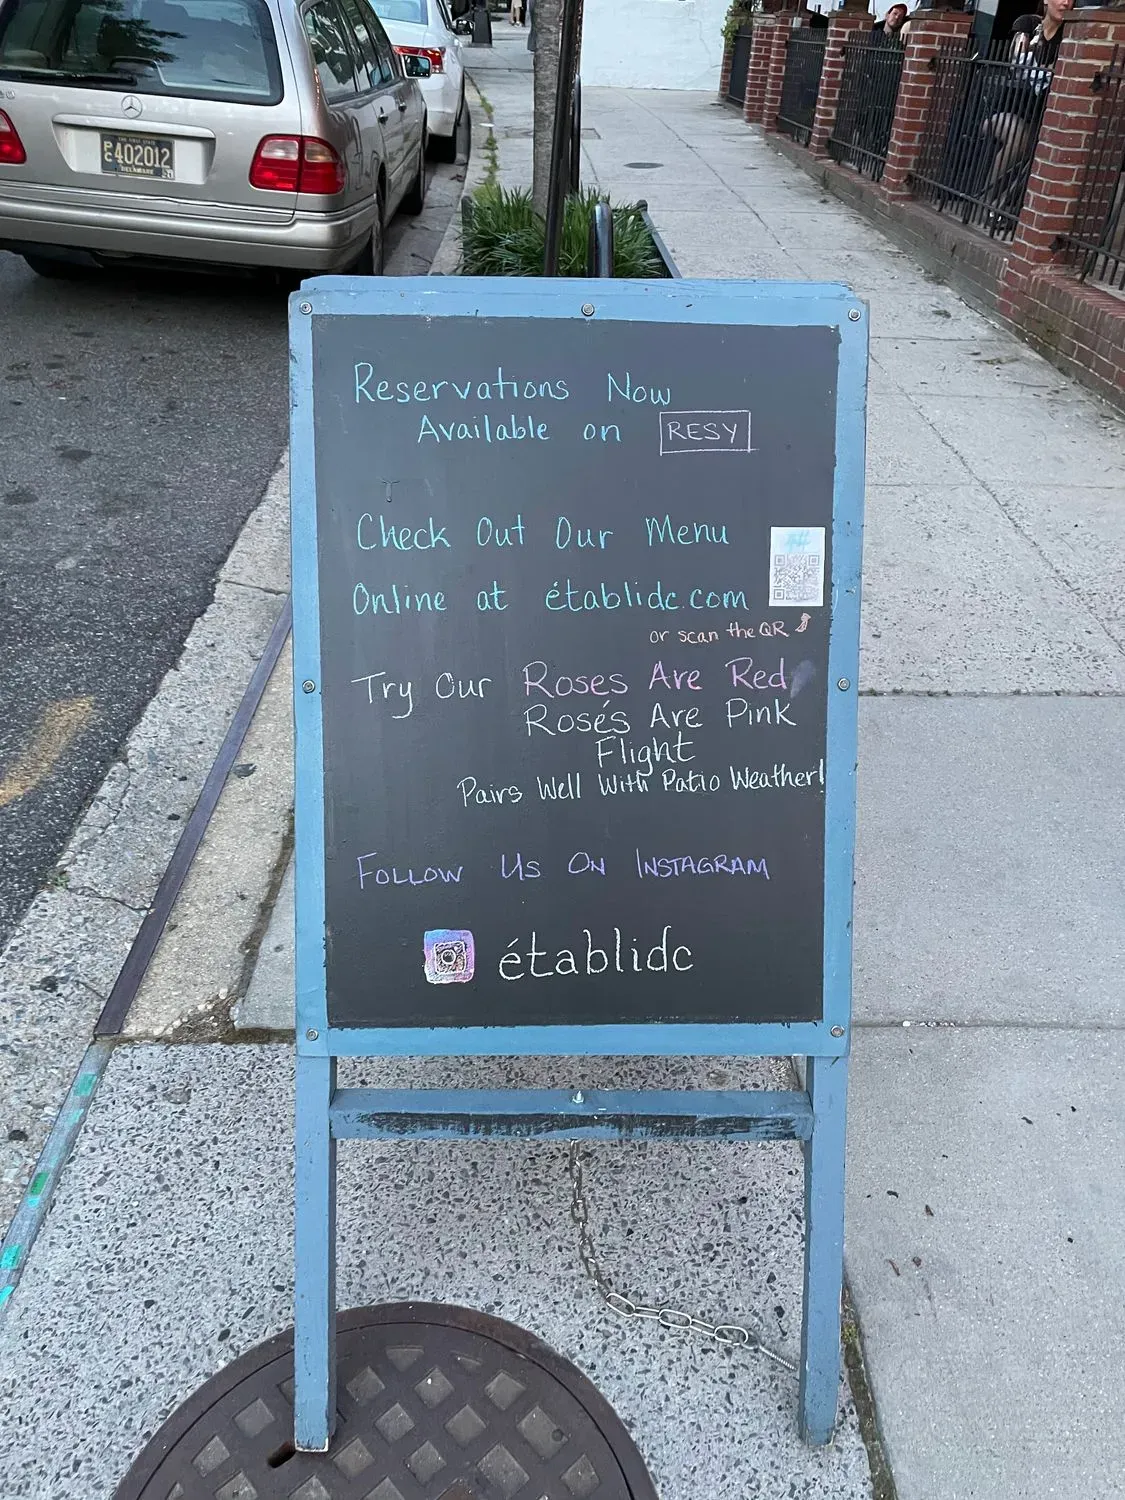 THE FIRST STATE
PC 402012
DELAWARE
Reservations Now
Available on RESY
Check Out Our Menu
Online at établidc.com
or scan the QR
Try Our Roses Are Red
Rosés Are Pink
Flight
Pairs Well With Patio Weather!
FOLLOW US ON INSTAGRAM
établidc